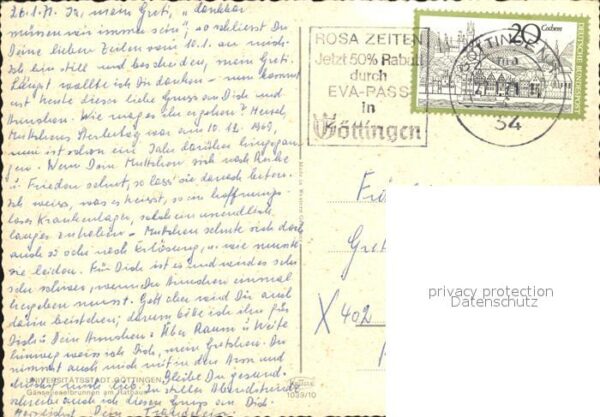 26.1.71. Ja, mein Greti, "dankbar
müssen wir immer sein", so schliesst Du
Deine lieben Zeilen vom 10.1. an mich.
Ich bin still und bescheiden, mein Greti.
Längst wollte ich Dir danken - nun kommt
erst heute dieser liebe Gruss an Dich und
Ännchen. Wie mag es ihr ergehen?
Muttchens Sterbetag war am 10.12.1969,
nun ist schon ein Jahr darüber hingegan-
gen. Wenn Dein Muttchen sich nach Ruhe
u. Frieden sehnt, so lass' sie danach leben.
Ich weiss, was es heisst, so ein hoffnungs-
loses Krankenlager, solch ein unendlich
langes zu haben - Muttchen sehnte sich doch
auch so sehr nach Erlösung, u. wie musste
sie leiden. Für Dich ist es und wird es sehr
sehr schwer, wenn Du Ännchen einmal
hergeben musst. Gott aber wird Dir auch
darin beistehen; darum bitte ich ihn für
Dich u. Dein Ännchen. Über Raum u. Weite
hinweg weiss ich Dich, mein Gretchen. Du
nimmst auch mich mit in den Arm und
Bleibe Du gesund.
In stiller Abendstunde
schreibe auch ich diesen Gruss an Dich.
Herzlichst, Dein
UNIVERSITÄTSSTADT GÖTTINGEN
Gänselieselbrunnen am Rathaus
1039/10
ROSA ZEITEN
Jetzt 50% Rabatt
durch
EVA-PASS
in
Göttingen
20 Cochem
DEUTSCHE BUNDESPOST
GÖTTINGEN
34
Gret
X 402
privacy protection
Datenschutz